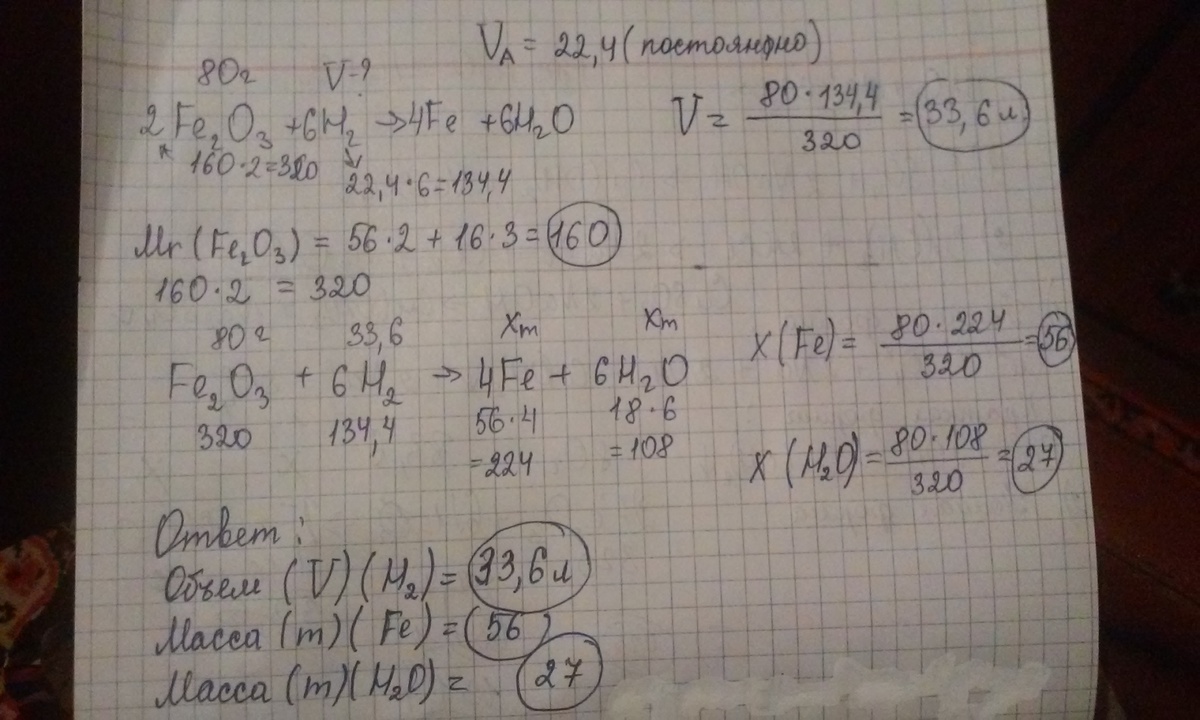 V_A = 22,4 (постоянно)
80г V-?
2Fe₂O₃ + 6H₂ → 4Fe + 6H₂O
160·2=320
22,4·6=134,4
V = 80·134,4 / 320 = 33,6 л
Mr (Fe₂O₃) = 56·2 + 16·3 = 160
160·2 = 320
80г 33,6 Xm Xm
Fe₂O₃ + 6H₂ → 4Fe + 6H₂O
320 134,4 56·4 18·6
=224 =108
X (Fe) = 80·224 / 320 = 56
X (H₂O) = 80·108 / 320 = 27
Ответ:
Объем (V) (H₂) = 33,6 л
Масса (m) (Fe) = (56)
Масса (m) (H₂O) = 27